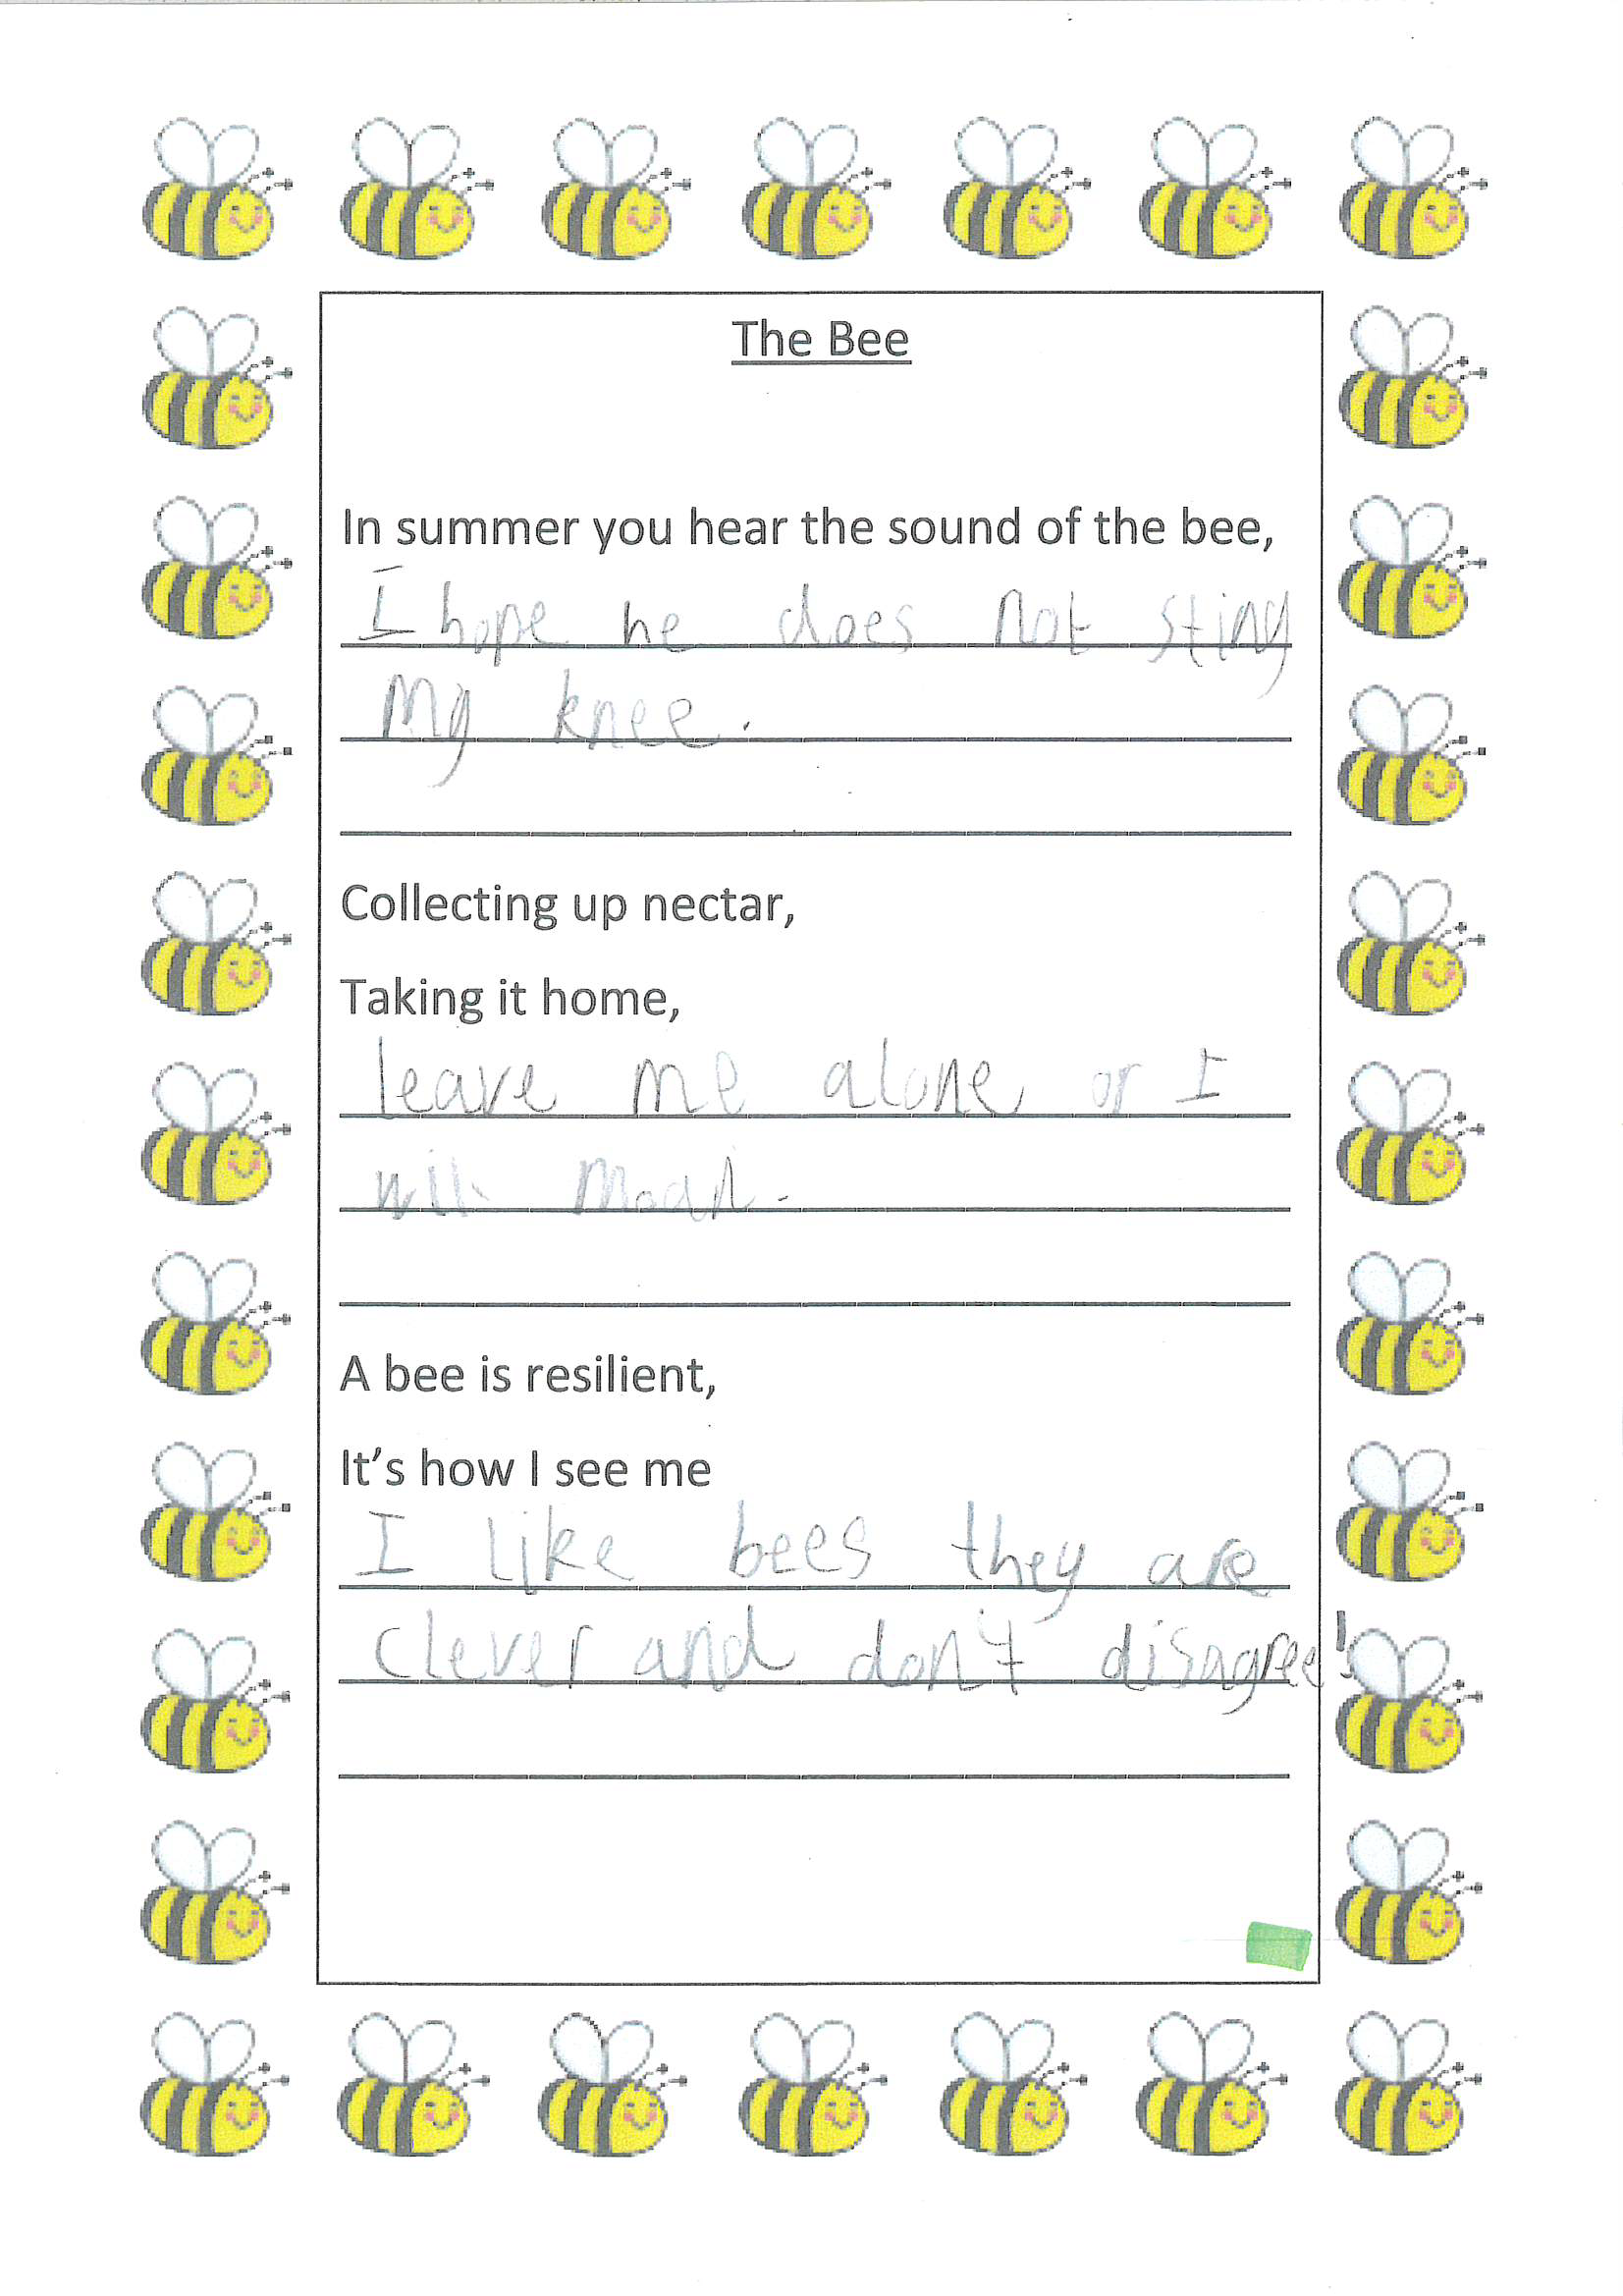 The Bee
In summer you hear the sound of the bee,
I hope he does not sting
My knee.
Collecting up nectar,
Taking it home,
leave me alone or I
will moan.
A bee is resilient,
It's how I see me
I like bees they are
clever and don't disagree!